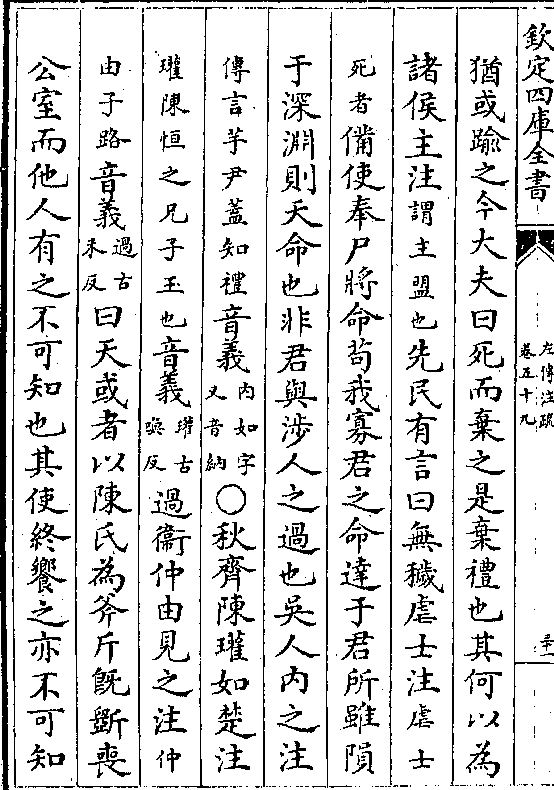 欽定四庫全書
左傳注疏
卷五十九
三十一
猶或踰之今大夫曰死而棄之是棄禮也其何以為
諸侯主注謂主盟也先民有言曰無穢虐士注虐士
死者備使奉尸將命苟我寡君之命達于君所雖隕
于深淵則天命也非君與涉人之過也吳人内之注
傳言芋尹蓋知禮音義内如字又音納○秋齊陳瓘如楚注
瓘陳恒之兄子玉也音義瓘古喚反過衞仲由見之注仲
由子路音義過古禾反曰天或者以陳氏為斧斤既斵喪
公室而他人有之不可知也其使終饗之亦不可知